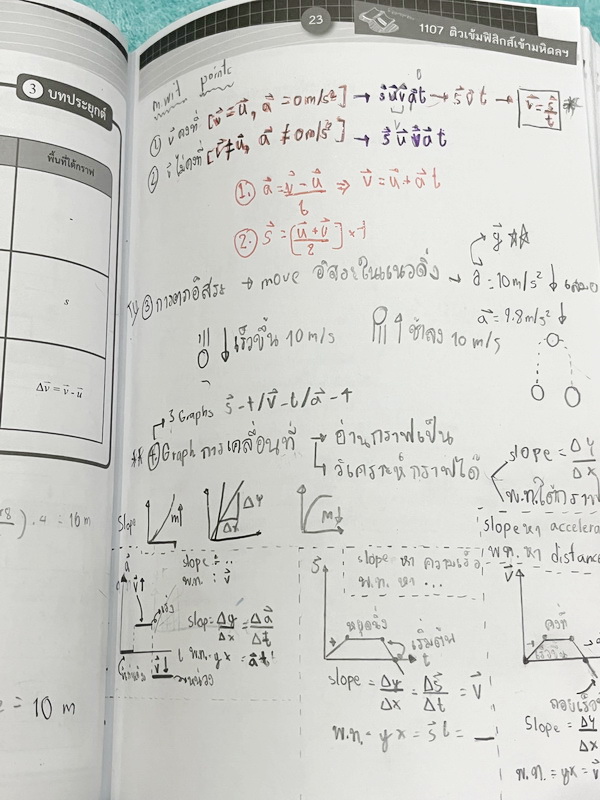 23
1107 ติวเข้มฟิสิกส์เข้ามหิดลฯ
3 บทประยุกต์
พื้นที่ใต้กราฟ
-
s
Δv⃗ = v⃗ - u⃗
). 4 = 16 m
= 10 m
mwit points
① v⃗ คงที่ [v⃗ = u⃗, a⃗ = 0 m/s²] → s⃗ u⃗ v⃗ a⃗ t → s⃗ v⃗ t → v⃗ = s⃗/t
② v⃗ ไม่คงที่ [v⃗ ≠ u⃗, a⃗ ≠ 0 m/s²] → s⃗ u⃗ v⃗ a⃗ t
1. a⃗ = (v⃗ - u⃗)/t ⇒ v⃗ = u⃗ + a⃗ t
2. s⃗ = [(u⃗ + v⃗)/2] × t
g⃗ ☆☆
③ การตกอิสระ → move อิสระในแนวดิ่ง → a⃗ = 10 m/s² ↓ เสมอ
a⃗ = 9.8 m/s² ↓
↓ เร็วขึ้น 10 m/s
↑ ช้าลง 10 m/s
3 Graphs s⃗-t / v⃗-t / a⃗-t
④ Graph การเคลื่อนที่ → อ่านกราฟเป็น
→ วิเคราะห์กราฟได้
slope = Δy/Δx
พ.ท. ใต้กราฟ
slope m↑
Δy
Δx
m↓
slope หา accelera
พ.ท. หา distanc
a⃗
v⃗↑
slope = ..
พ.ท. : v⃗
slop = Δy/Δx = Δa⃗/Δt
t พ.ท. = yx = a⃗t
v⃗↓ หน่วง
s⃗
slope หา ความเร็ว
พ.ท. หา ...
หยุดนิ่ง
เริ่มต้น
t
slope = Δy/Δx = Δs⃗/Δt = v⃗
พ.ท. = yx = s⃗ t = —
v⃗
คงที่
เร็วขึ้น
slope = Δy/Δx
พ.ท. = yx = v⃗